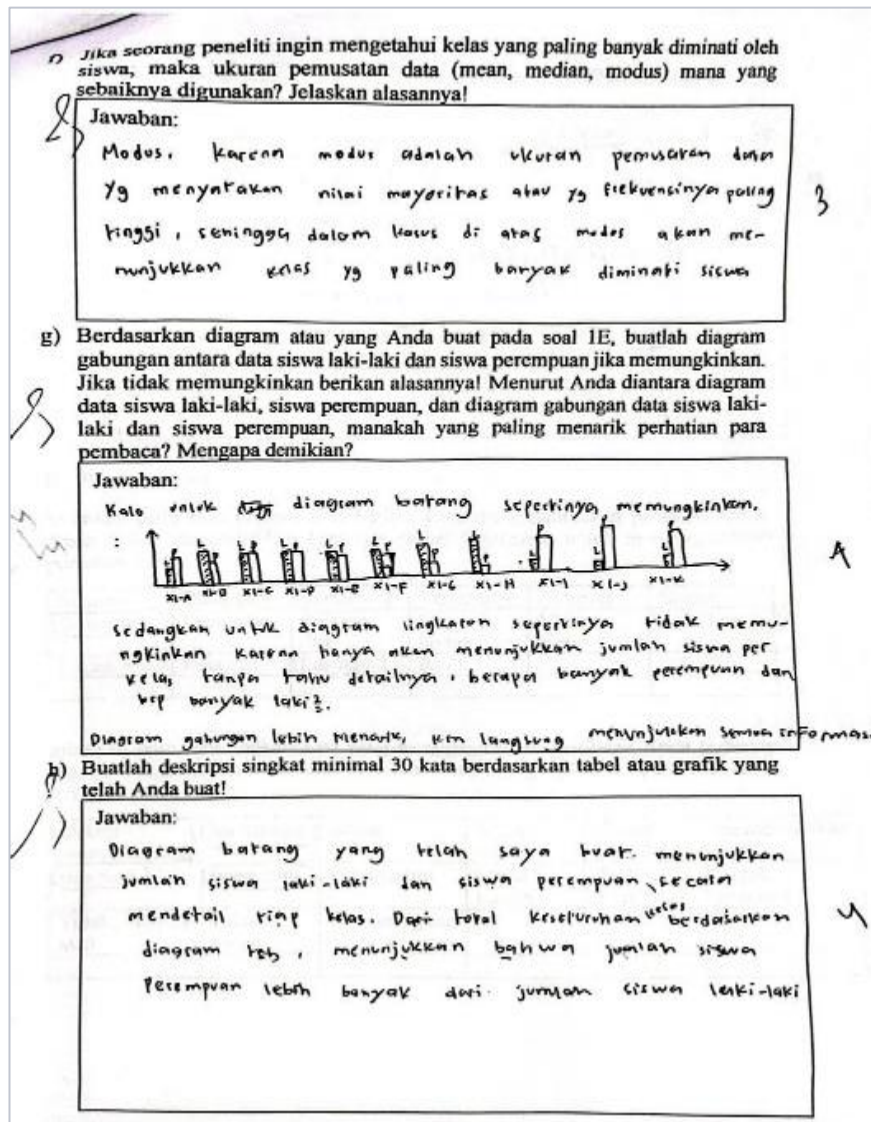 Jika seorang peneliti ingin mengetahui kelas yang paling banyak diminati oleh
siswa, maka ukuran pemusatan data (mean, median, modus) mana yang
sebaiknya digunakan? Jelaskan alasannya!
Jawaban:
Modus. Karena modus adalah ukuran pemusatan data
yg menyatakan nilai mayoritas atau yg frekuensinya paling
tinggi, sehingga dalam kasus di atas modus akan me-
nunjukkan kelas yg paling banyak diminati siswa
3
g) Berdasarkan diagram atau yang Anda buat pada soal 1E, buatlah diagram
gabungan antara data siswa laki-laki dan siswa perempuan jika memungkinkan.
Jika tidak memungkinkan berikan alasannya! Menurut Anda diantara diagram
data siswa laki-laki, siswa perempuan, dan diagram gabungan data siswa laki-
laki dan siswa perempuan, manakah yang paling menarik perhatian para
pembaca? Mengapa demikian?
Jawaban:
Kalo untuk diagram batang sepertinya memungkinkan.
:
L P L P L P L P L P L P L P L P L P L P L P
XI-A XI-B XI-C XI-D XI-E XI-F XI-G XI-H XI-I XI-J XI-K
4
sedangkan untuk diagram lingkaran sepertinya tidak memu-
ngkinkan karena hanya akan menunjukkan jumlah siswa per
kelas tanpa tahu detailnya, berapa banyak perempuan dan
brp banyak laki2.
Diagram gabungan lebih menarik, krn langsung menunjukkan semua informasi
h) Buatlah deskripsi singkat minimal 30 kata berdasarkan tabel atau grafik yang
telah Anda buat!
Jawaban:
Diagram batang yang telah saya buat menunjukkan
jumlah siswa laki-laki dan siswa perempuan secara
mendetail tiap kelas. Dari total keseluruhan kelas berdasarkan
diagram tsb, menunjukkan bahwa jumlah siswa
Perempuan lebih banyak dari jumlah siswa laki-laki
4